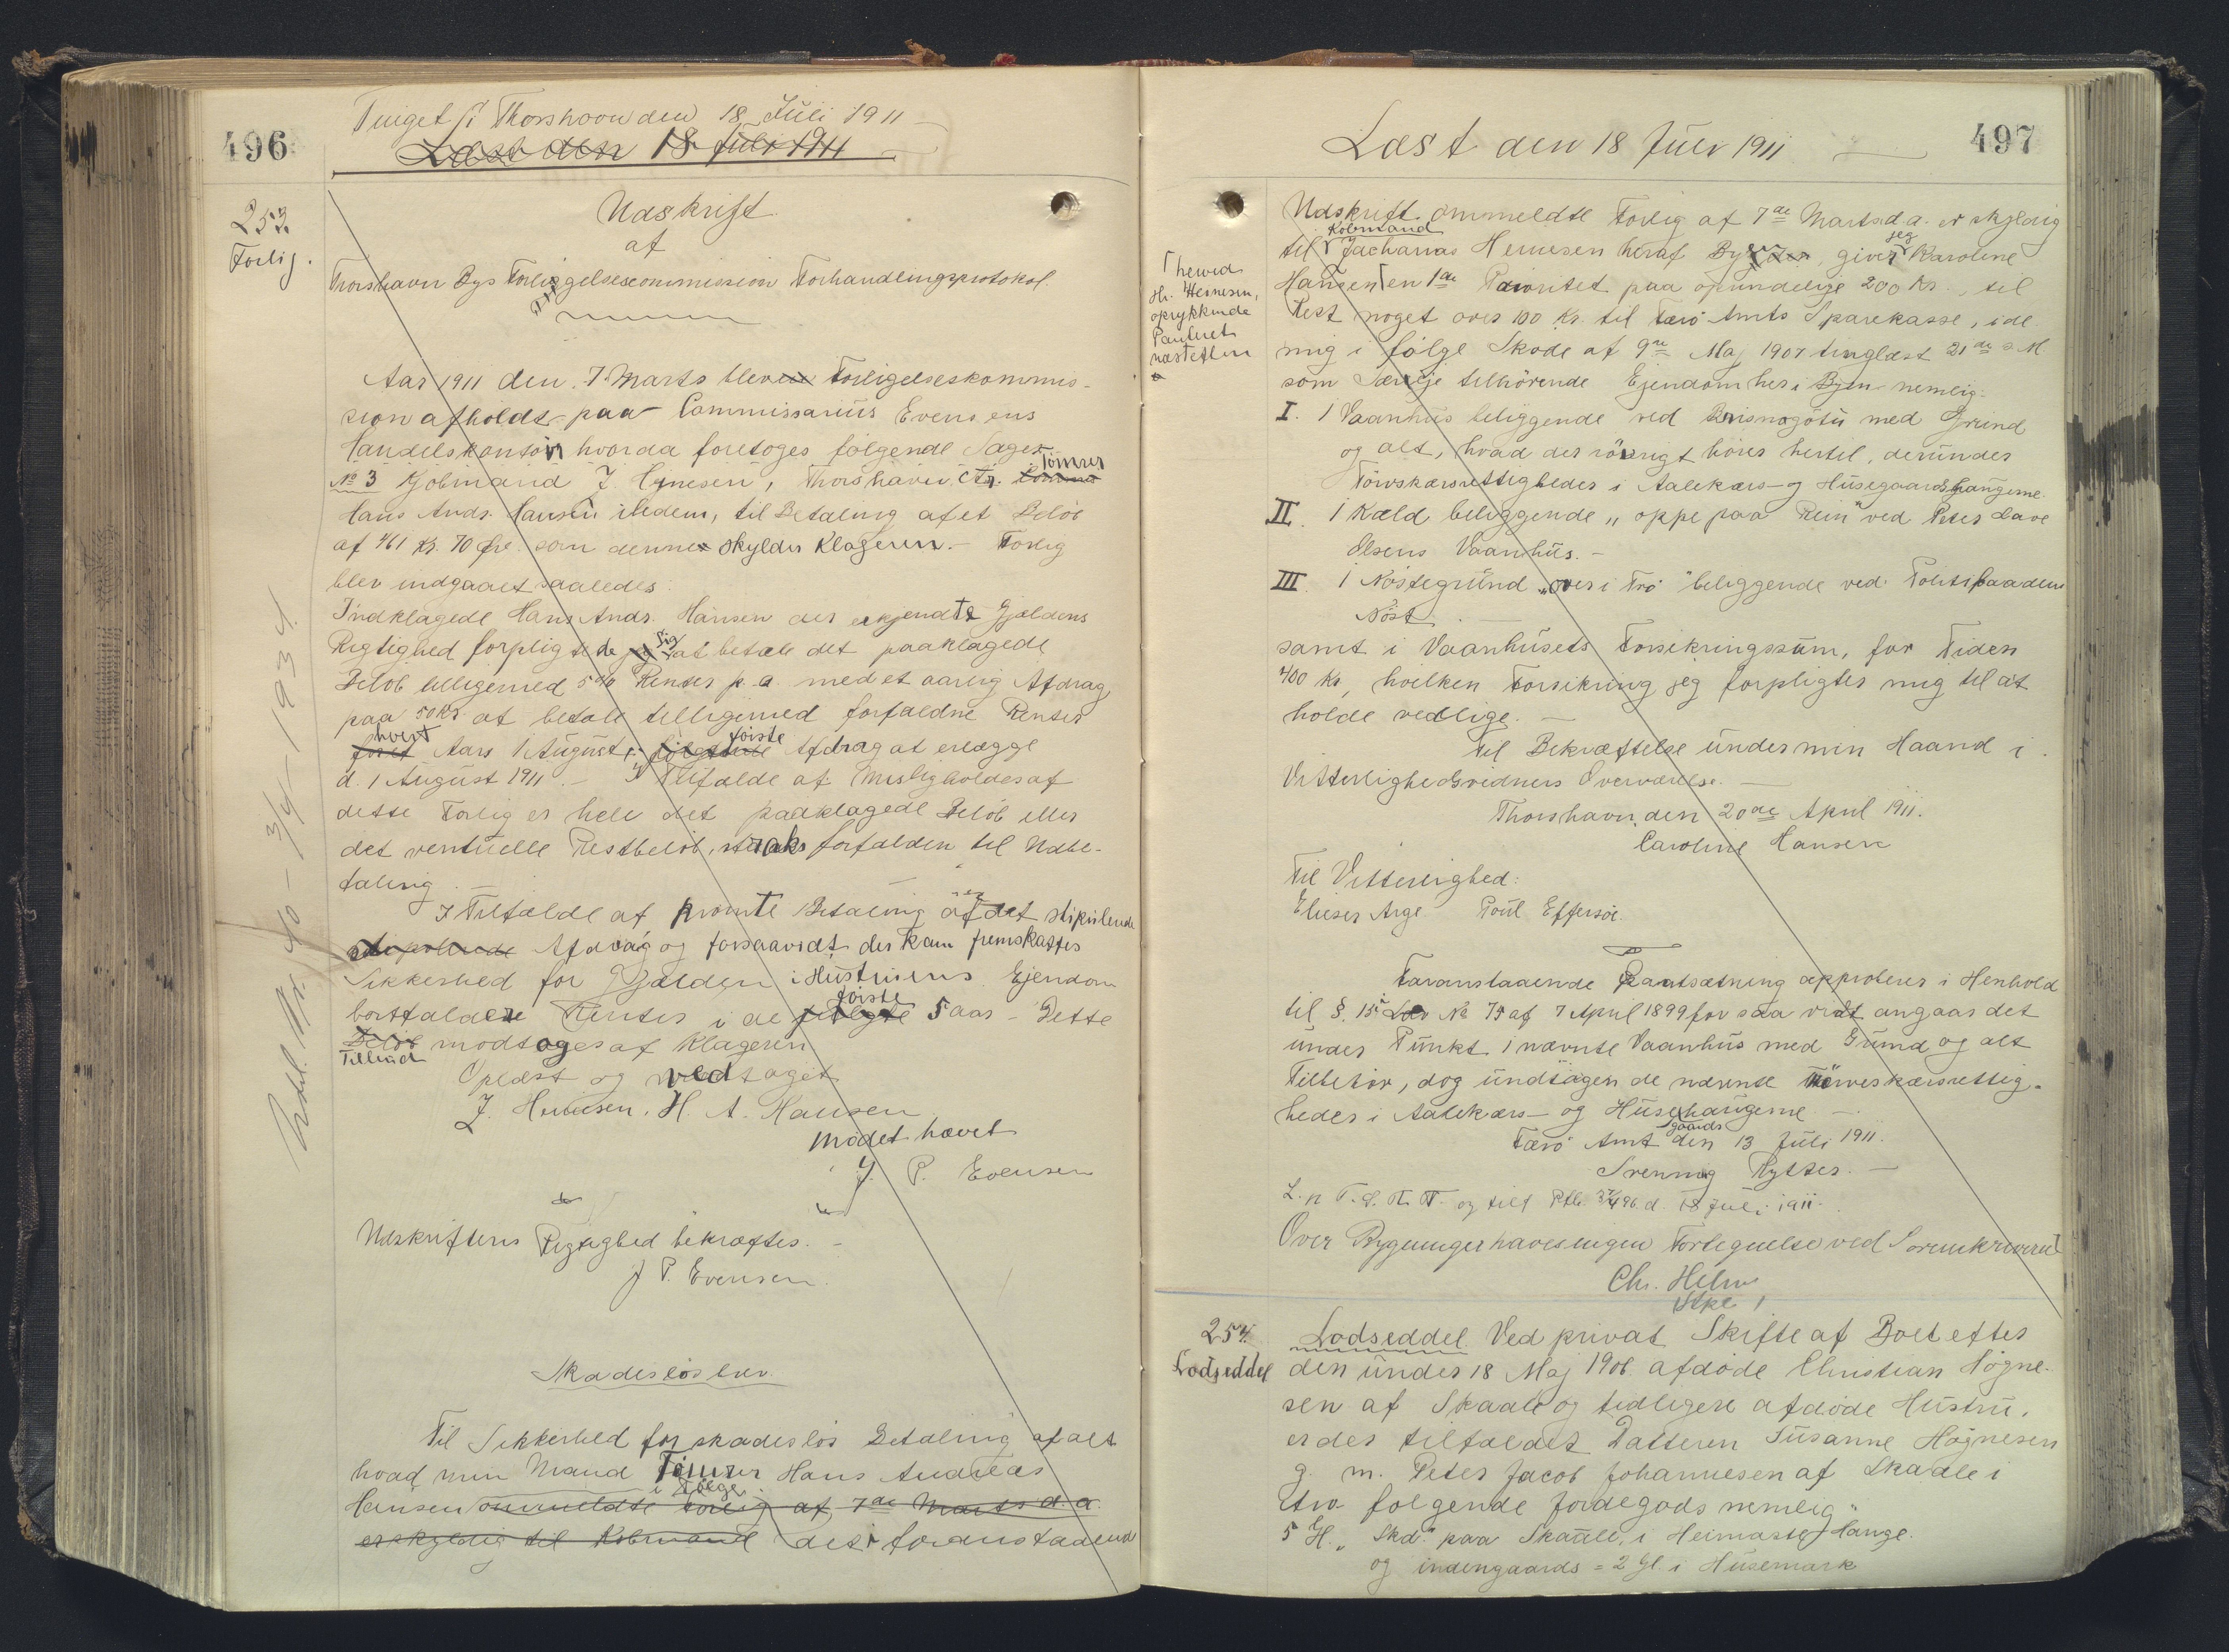 496
Tinget i Thorshavn den 18 Juli 1911
Læst den 18 Juli 1911
253.
Forlig.
Udskrift
af
Thorshavn Bys Forligelsescommission Forhandlingsprotokol.
Aar 1911 den 7. Marts blev Forligelseskommis-
sion afholdt paa Commissarius Evensens
Handelskontor hvorda foretoges følgende Sager
No 3 Kjøbmand J. Thorshavn ctr. Tømrer
Hans Ands. Hansen ibidem, til Betaling af et Beløb
af 461 Kr. 70 Øre som denne skylder Klageren. - Forlig
blev indgaaet saaledes:
Indklagede Hans Ands. Hansen der erkjendte Gjældens
Rigtighed forpligtede sig at betale det paaklagede
Beløb tilligemed 5% Renter p. a. med et aarlig Afdrag
paa 50 Kr. at betale tilligemed forfaldne Renter
hvert Aars 1 August, første Afdrag at erlægge
d. 1 August 1911. - I Tilfælde af Misligholdes af
dette Forlig er hele det paaklagede Beløb eller
det ventuelle Restbeløb, straks forfalden til Udbe-
taling. -
I Tilfælde af promte Betaling af det stipulerede
Afdrag og forsaavidt der kan fremskaffes
Sikkerhed for Gjælden i Hustruens Ejendom
bortfalder Renter i de første 5 aar - Dette
Tilbud modtoges af Klageren
Oplæst og vedtaget
J. Hernesen. H. A. Hansen
Mødet hævet
J. P. Evensen
Udskriftens Rigtighed bekræftes. -
J P. Evensen.
Skadesløsbrev.
Til Sikkerhed for skadesløs Betaling af alt
hvad min Mand Tømrer Hans Andreas
Hansen i Følge ommeldte Forlig af 7de Marts d. a.
er skyldig til Købmand des foranstaaende
Udsl. 40 - 3/4 - 1934.
497
Læst den 18 Juli 1911
Udskrift ommeldte Forlig af 7de Marts d. a. er skyldig
til Købmand Zacharias Hernesen heraf Byen, giver jeg Karoline
Hansen en 1ste Prioritet paa oprindelige 200 Kr., til
Rest noget over 100 Kr. til Færø Amts Sparekasse, i de
mig i følge Skøde af 9de Maj 1907 tinglæst 21de s. M.
som Særeje tilhørende Ejendom her i Byen nemlig:
herved
Hr. Hernesen,
oprykkende
Panteret
næstefter
I. 1 Vaanhus beliggende ved med Grund
og alt, hvad der rövrigt hörer hertil, derunder
Törvskærsrettigheder i Aalekærs- og Husegaardshaugerne.
II. 1 Kæld beliggende "oppe paa Rein" ved Peter Dave
Olsens Vaanhus. -
III. 1 Nøstegrund "over i Trö" beliggende ved Politi
Nöst
samt i Vaanhusets Forsikringssum, for Tiden
400 Kr, hvilken Forsikring jeg forpligter mig til at
holde vedlige. -
Til Bekræftelse under min Haand i
Vitterlighedsvidners Overværelse. -
Thorshavn, den 20de April 1911.
Caroline Hansen
Til Vitterlighed:
Elieser Arge Poul Effersøe.
Foranstaaende Pantsætning approberes i Henhold
til §. 15 i Lov No 75 af 7 April 1899 for saa vidt angaar det
under Punkt 1 nævnte Vaanhus med Grund og alt
Tilbehör, dog undtagen de nævnte Törveskærsrettig-
heder i Aalekærs- og Husegaardshaugerne. -
Færö Amt den 13 Juli 1911.
Svenning Rytter. -
d. 18 Juli 1911.
Over Bygninger haves ingen Fortegnelse ved Sorenskriveriet
Chr. Helm
254.
Lodseddel
Lodseddel. Ved privat Skifte af Boet efter
den under 18 Maj 1906 afdøde Christian Högne-
sen af Skaale og tidligere afdøde Hustru,
er der tilfaldet Datteren Susanne Högnesen
g. m. Peter Jacob Johannesen af Skaale i
følgende Jordegods nemlig
5 Gl. Skd. paa Skaale, i Heimaste Hauge.
og indengaards = 2 Gl. i Husemark